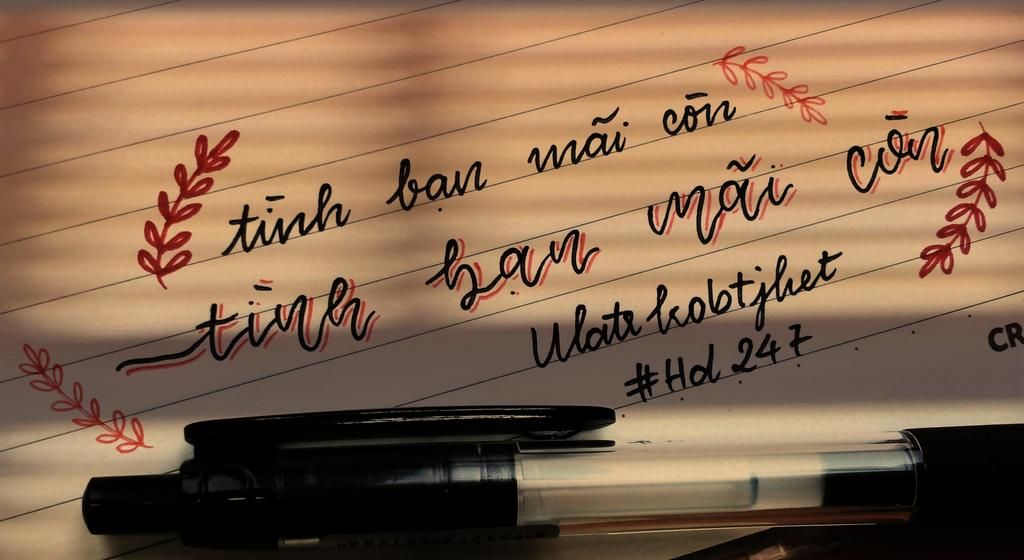 tình bạn mãi còn
tình bạn mãi còn
Ulatr kobtjhet
#Hd 247
CR